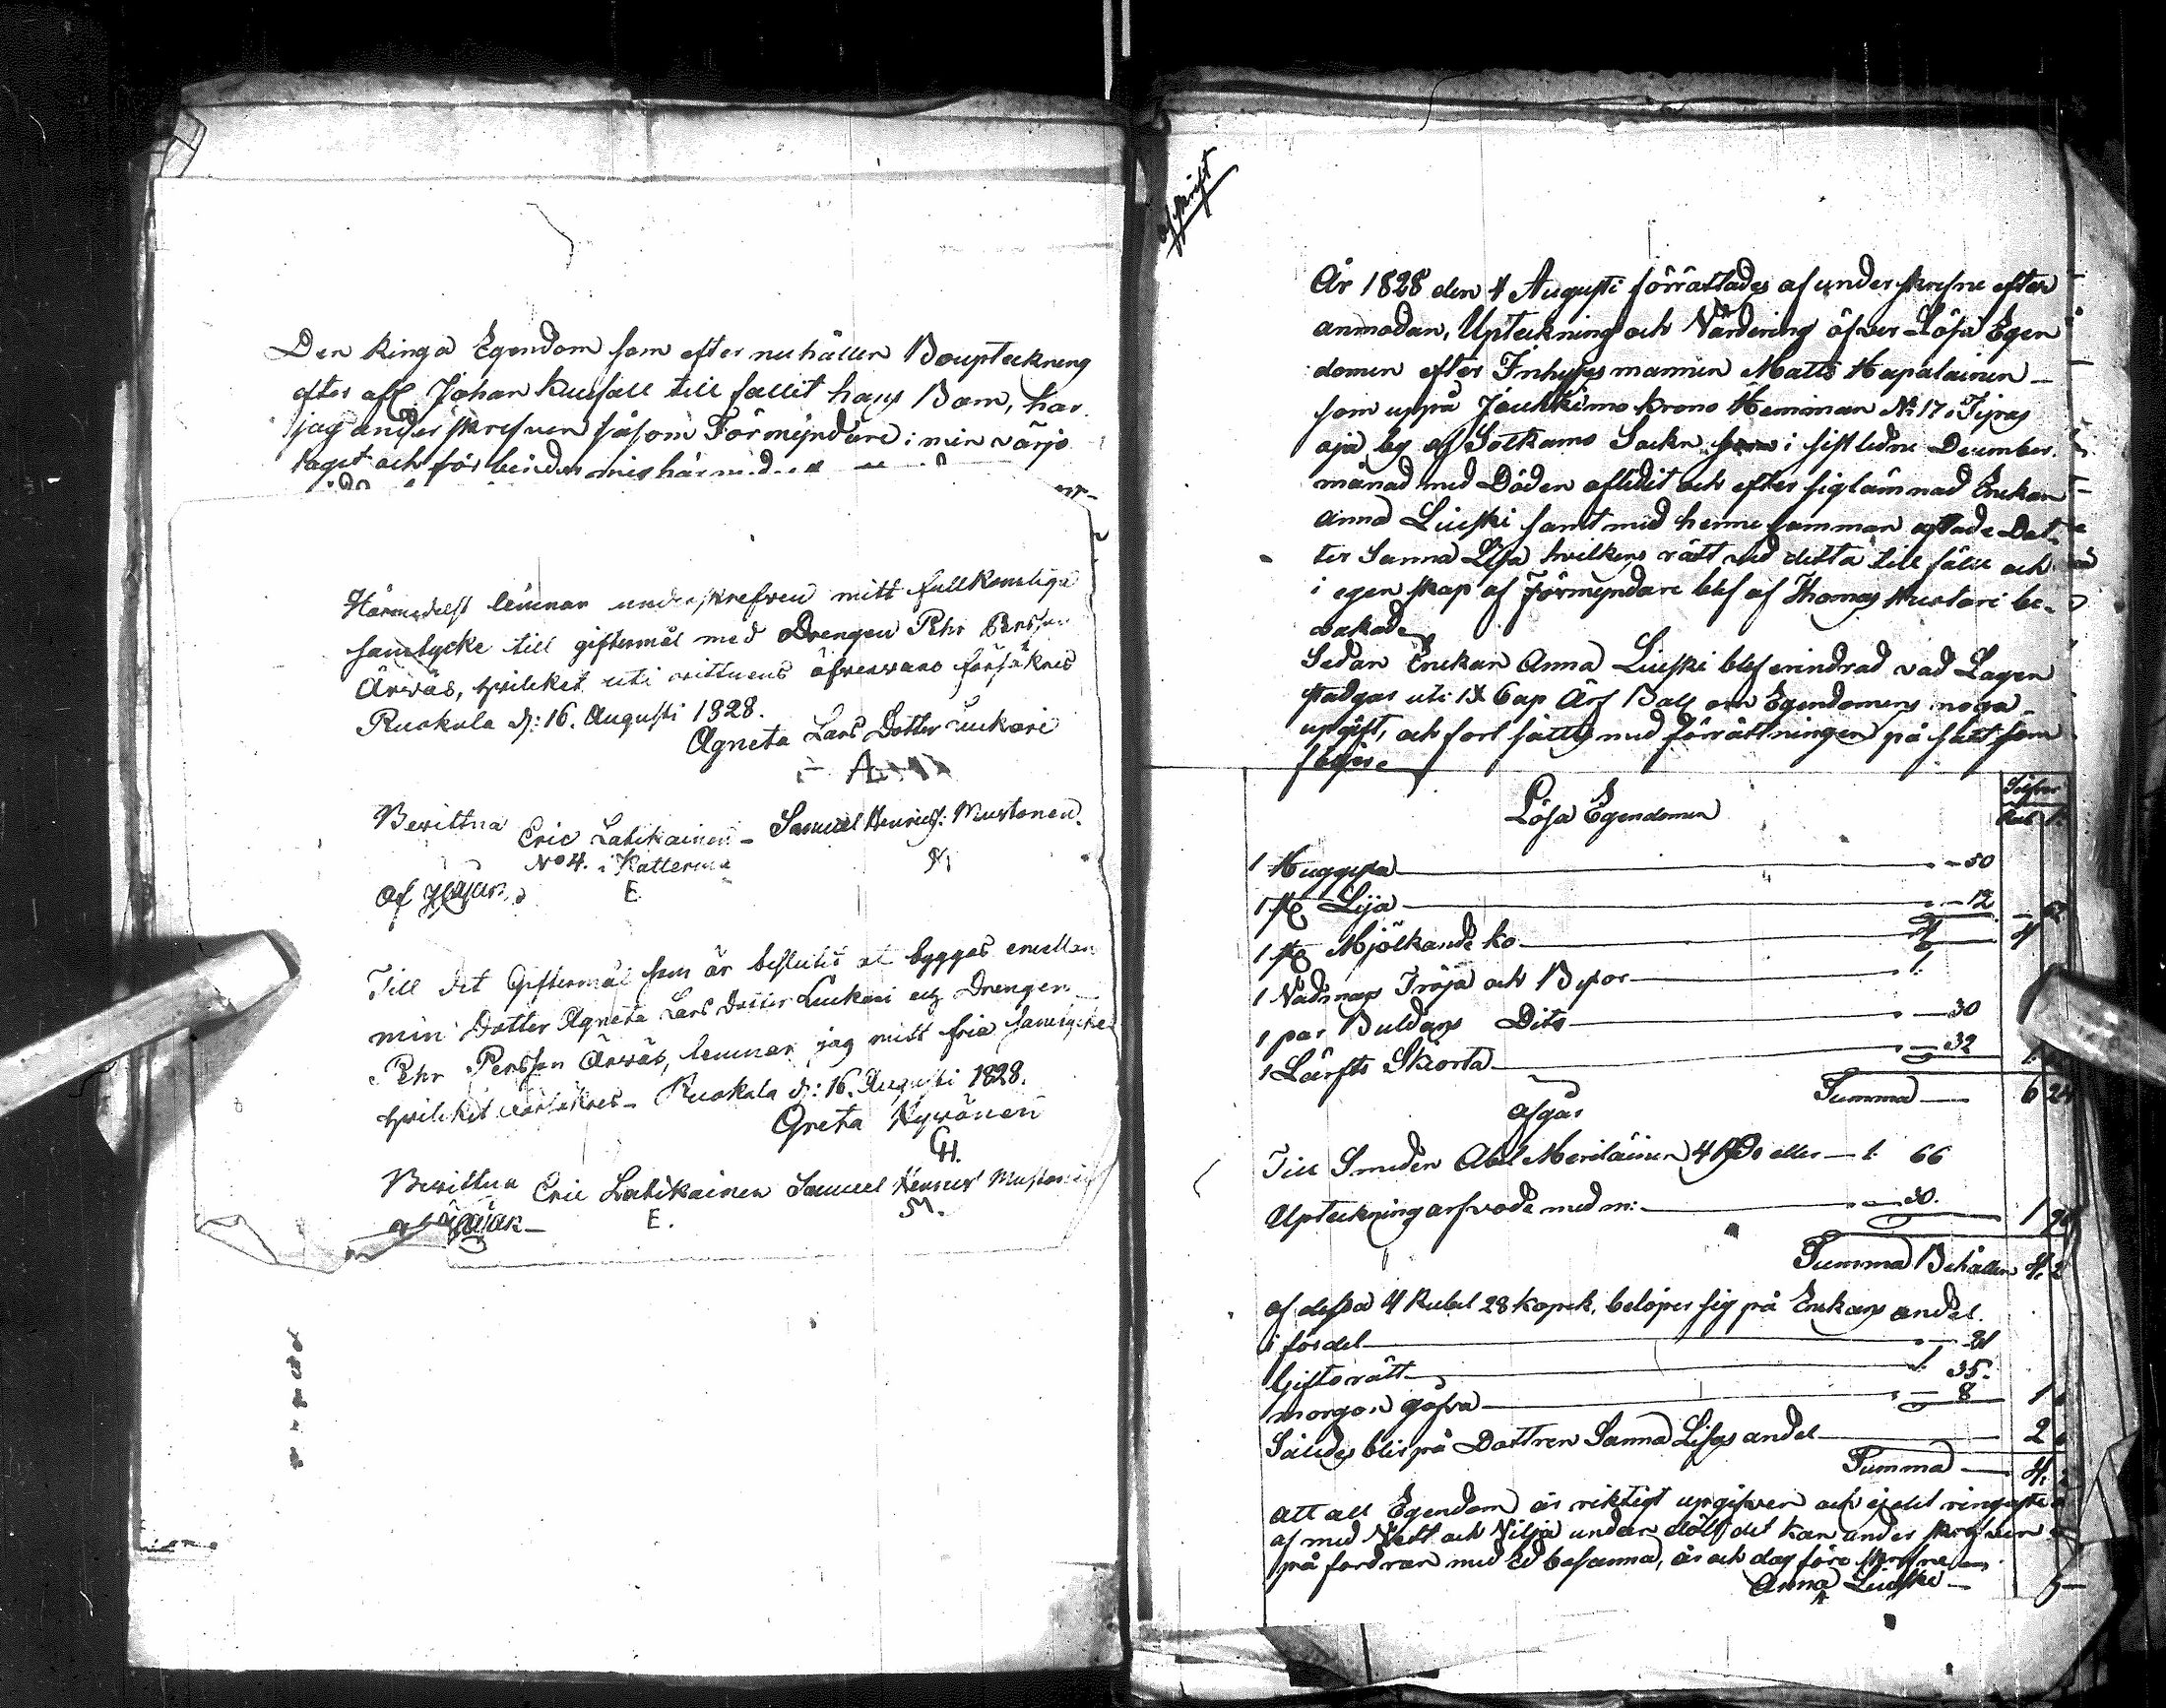 Den ringa Egendom som efter nu hållen Bouptekning
efter afl. Johan Kusfall till fallit hans Barn, har
jag underskrefven såsom Förmyndare i min värjo
taget och för binder mig härmed
Härmedelst lemnar underskrefven mitt fullkomliga
samtycke till giftermål med Drengen Pehr Persson
Ärväs, hvilket uti vittnens öfvervaro försäkras
Ruokula d: 16. Augusti 1828.
Agneta Lars Dotter Luukari
Bevittna
Eric Latikainen
Samuel Henricss: Mustonen.
No 4. i Katterma
M
E
Till det Giftermål som är beslutit at byggas emellan
min Dotter Agneta Lars Dotter Luukari och Drengen
Pehr Persson Ärväs, lemnar jag mitt fria samtycke
hvilket försäkras Ruokula d: 16. Augusti 1828.
Greta Hyvönen
GH.
Bevittna Eric Latikainen Samuel Henricss Mustonen
E. M.
Afskrift
År 1828 den 4 Augusti förrättades af underskrefne efter
anmodan, Upteckning och Värdering öfver Lösa Egen
domen efter Inhysesmannen Matts Hapalainen
som uppå Jouhkimo krono Hemman No 17 i Tipas
oja by af Sotkamo Sockn i sistledne December
månad med Döden aflidit och efter sig lämnad Enkan
Anna Liuski samt med henne samman aflade Dot-
ter Sanna Lisa hvilkens rätt vid detta till fälle och
i egenskap af Förmyndare blef af Thomas Mustari be-
vakade
Sedan Enkan Anna Liuski blef erindrad vad Lagen
stadgar uti IX Cap Ärf Balk om Egendomens noga
upgift, och fort sattes med förrättningen på sätt som
följer
Lösa Egendomen
Silfver
Rub k
1 Huggyxa 50
1 st Lija 12
1 st Mjölkande ko 4 4
1 Vadmans Tröja och Byxor 1.
1 par Buldans Dito 30
1 Lärfts Skiorta 32
Summa 6 24
Afgår
Till Smeden Abel Meriläinen 4 Rds eller 1. 66
Upteckningarfvode med m: 30. 1
Summa Behållen 4.
af dessa 4 Rubel 28 kopek, beloper sig på Enkans andel.
i fördel
Giftorätt 1. 35.
morgon gåfva 8 1
Således blir på Dottren Sanna Lisas andel 2
Summa 4.
Att all Egendom är riktigt upgifven och ej det ringaste
af med Vett och Vilja undan dölt, det kan underskrefven
på fordran med Ed besanna, år och dag föreskrefne
Anna Liuski